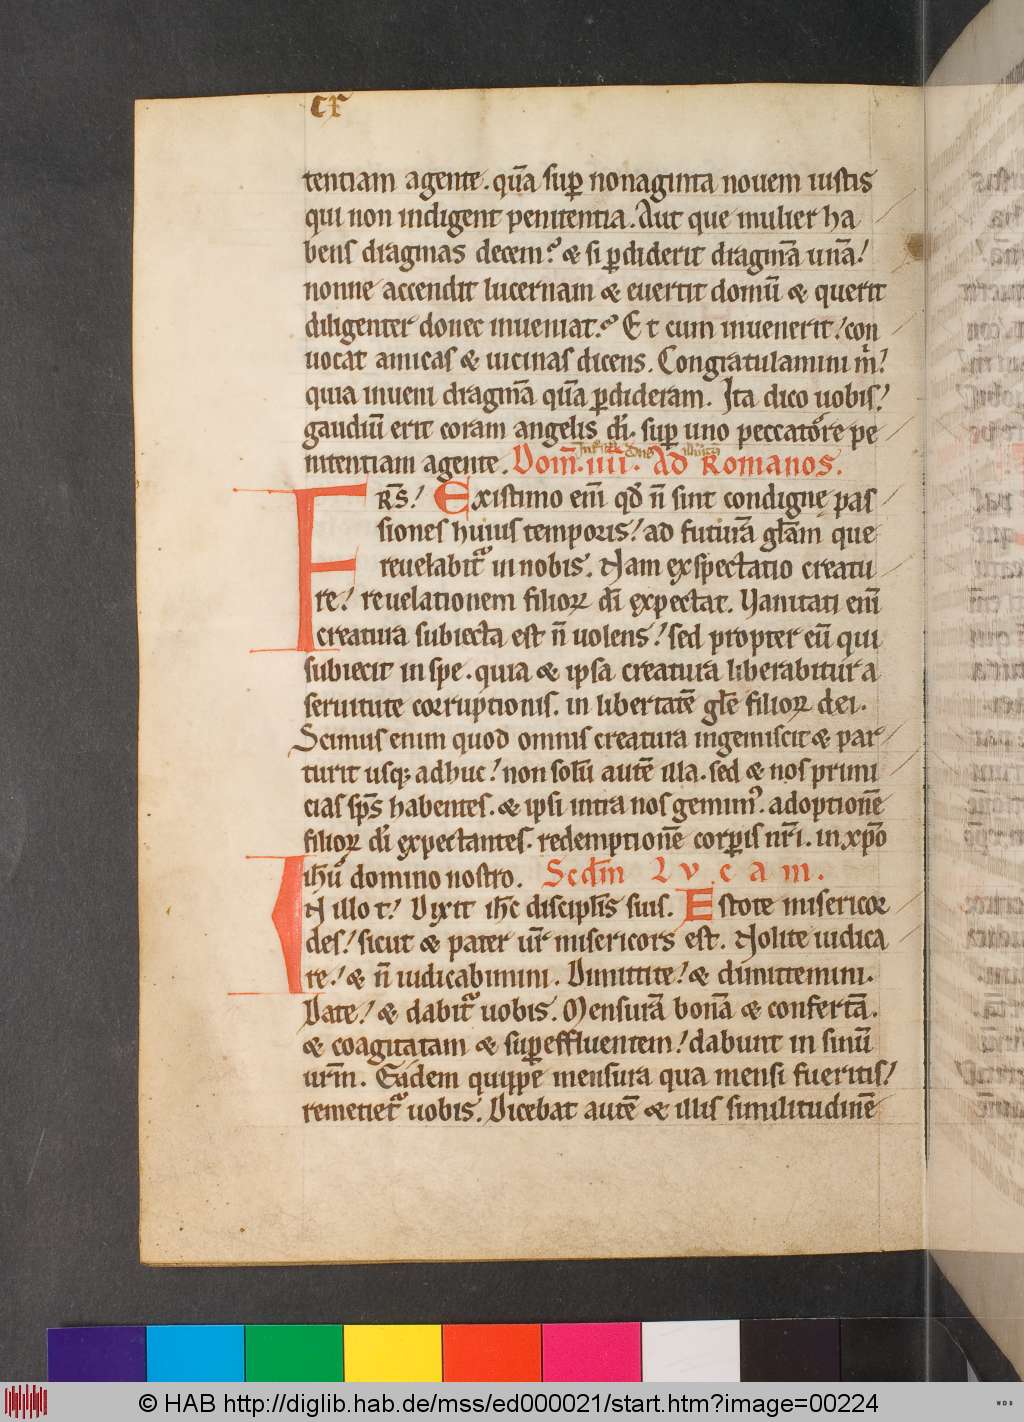 cx
tentiam agente. quā suꝑ nonaginta nouem iustis
qui non indigent penitentia. Aut que mulier ha
bens dragmas decem? & si ꝑdiderit dragmā unā!
nonne accendit lucernam & euertit domū & querit
diligenter donec inueniat? Et cum inuenerit! con
uocat amicas & uicinas dicens. Congratulamini m̍!
quia inueni dragmā quā ꝑdideram. Ita dico uobis!
gaudiū erit coram angelis dī. suꝑ uno peccatore pe
nitentiam agente. Dom̄. iiii. Ad Romanos.
FRS̄! Existimo em̄ qd̄ n̄ sint condignę pas
siones huius temporis! ad futurā gl̄am que
reuelabit᷑ in nobis. Nam exspectatio creatu
re! reuelationem filioꝝ dī expectat. Vanitati em̄
creatura subiecta est n̄ uolens! sed propter eū qui
subiecit in spe. quia & ipsa creatura liberabitur a
seruitute corruptionis. in libertatē gl̄e filioꝝ dei.
Scimus enim quod omnis creatura ingemiscit & par
turit usq; adhuc! non solū autē illa. sed & nos primi
cias sp̄s habentes. & ipsi intra nos gemim᷒. adoptionē
filioꝝ dī expectantes. redemptionē corꝑis nr̄i. in xp̄o
ihū domino nostro. Scd̄m Lvcam.
IN illo t! Dixit ih̄c discipl̄is suis. Estote misericor
des! sicut & pater ur̄ misericors est. Nolite iudica
re! & n̄ iudicabimini. Dimittite! & dimittemini.
Date! & dabit᷑ uobis. Mensurā bonā & confertā.
& coagitatam & suꝑeffluentem! dabunt in sinū
urm̄. Eadem quippe mensura qua mensi fueritis!
remetiet᷑ uobis. Dicebat autē & illis similitudinē
© HAB http://diglib.hab.de/mss/ed000021/start.htm?image=00224